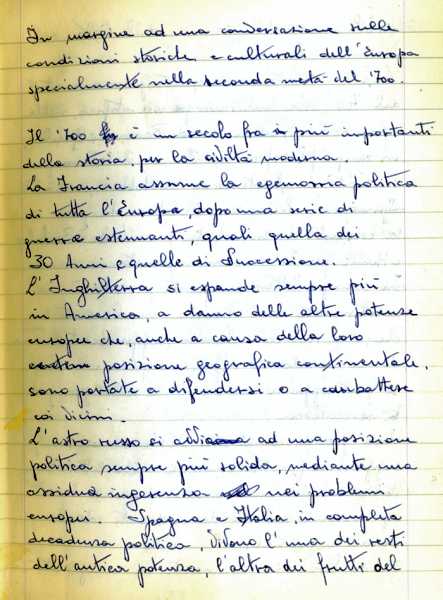 In margine ad una conversazione sulle
condizioni storiche e culturali dell'Europa
specialmente nella seconda metà del '700.
Il '700 è un secolo fra i più importanti
della storia, per la civiltà moderna.
La Francia assume la egemonia politica
di tutta l'Europa, dopo una serie di
guerre estenuanti, quali quella dei
30 Anni e quelle di Successione.
L'Inghilterra si espande sempre più
in America, a danno delle altre potenze
europee che, anche a causa della loro
posizione geografica continentale,
sono portate a difendersi o a combattere
coi vicini.
L'astro russo si avvia ad una posizione
politica sempre più solida, mediante una
assidua ingerenza nei problemi
europei. Spagna e Italia, in completa
decadenza politica, vivono l'una dei resti
dell'antica potenza, l'altra dei frutti del